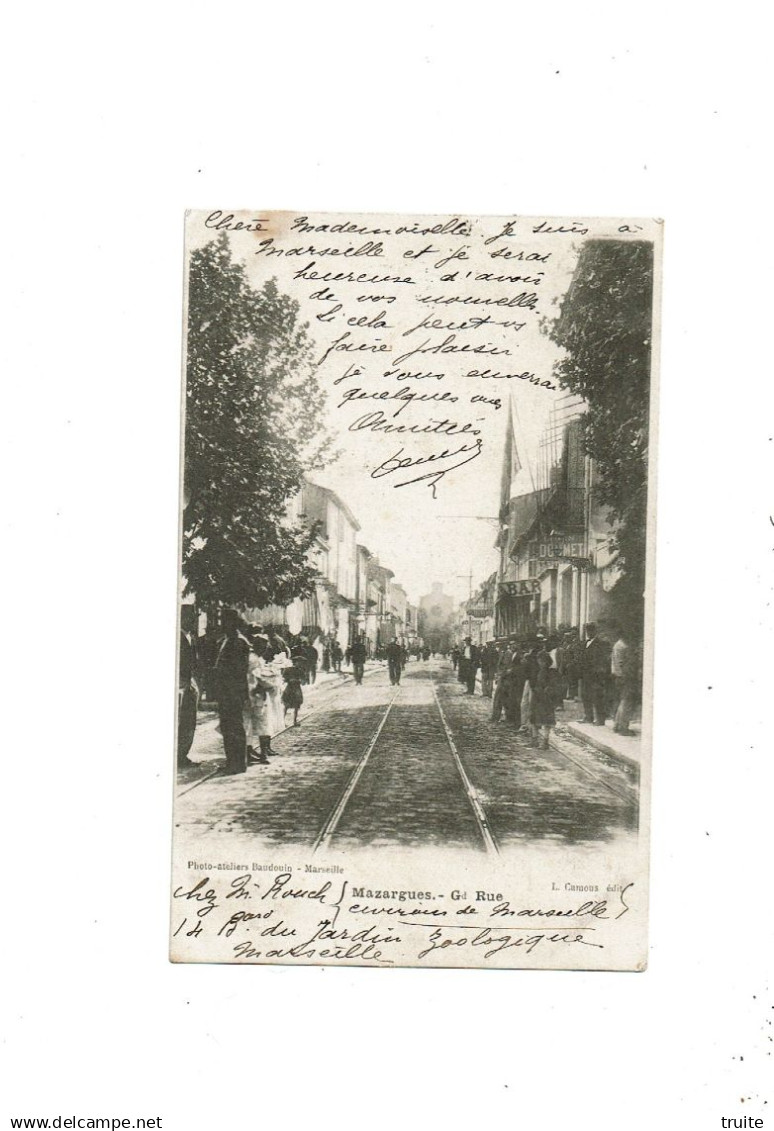 Chère Mademoiselle. Je suis à
Marseille et je serai
heureuse d'avoir
de vos nouvelles.
Si cela peut vs
faire plaisir
je vous enverrai
quelques vues
Amitiés
DUPONET
BAR
Photo-ateliers Baudouin - Marseille
L. Camoux édit
Mazargues. - Gd Rue
environs de Marseille
chez M. Rouch
14 Bard du Jardin Zoologique
Marseille
truite